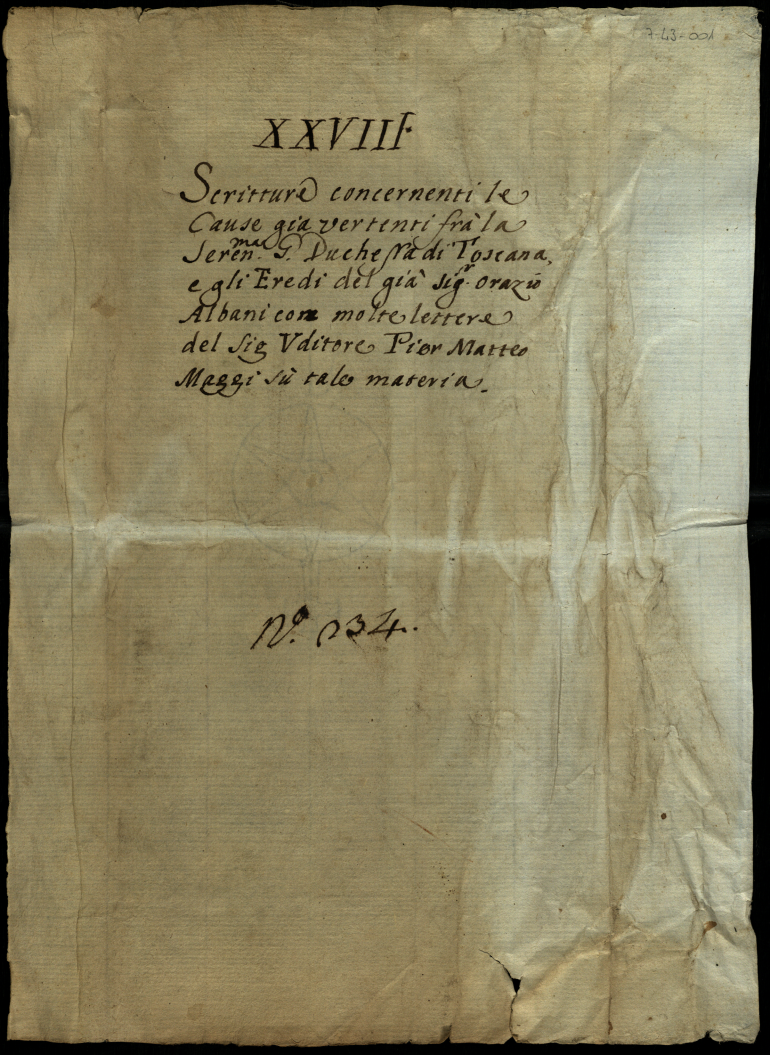 7-43-001
XXVIII
Scritture concernenti le
Cause gia vertenti frà la
Seren.ma G. Duchessa di Toscana,
e gli Eredi del già Sig.r Orazio
Albani con molte lettere
del Sig Vditore Pier Matteo
Maggi sù tale materia.
N.o 234.